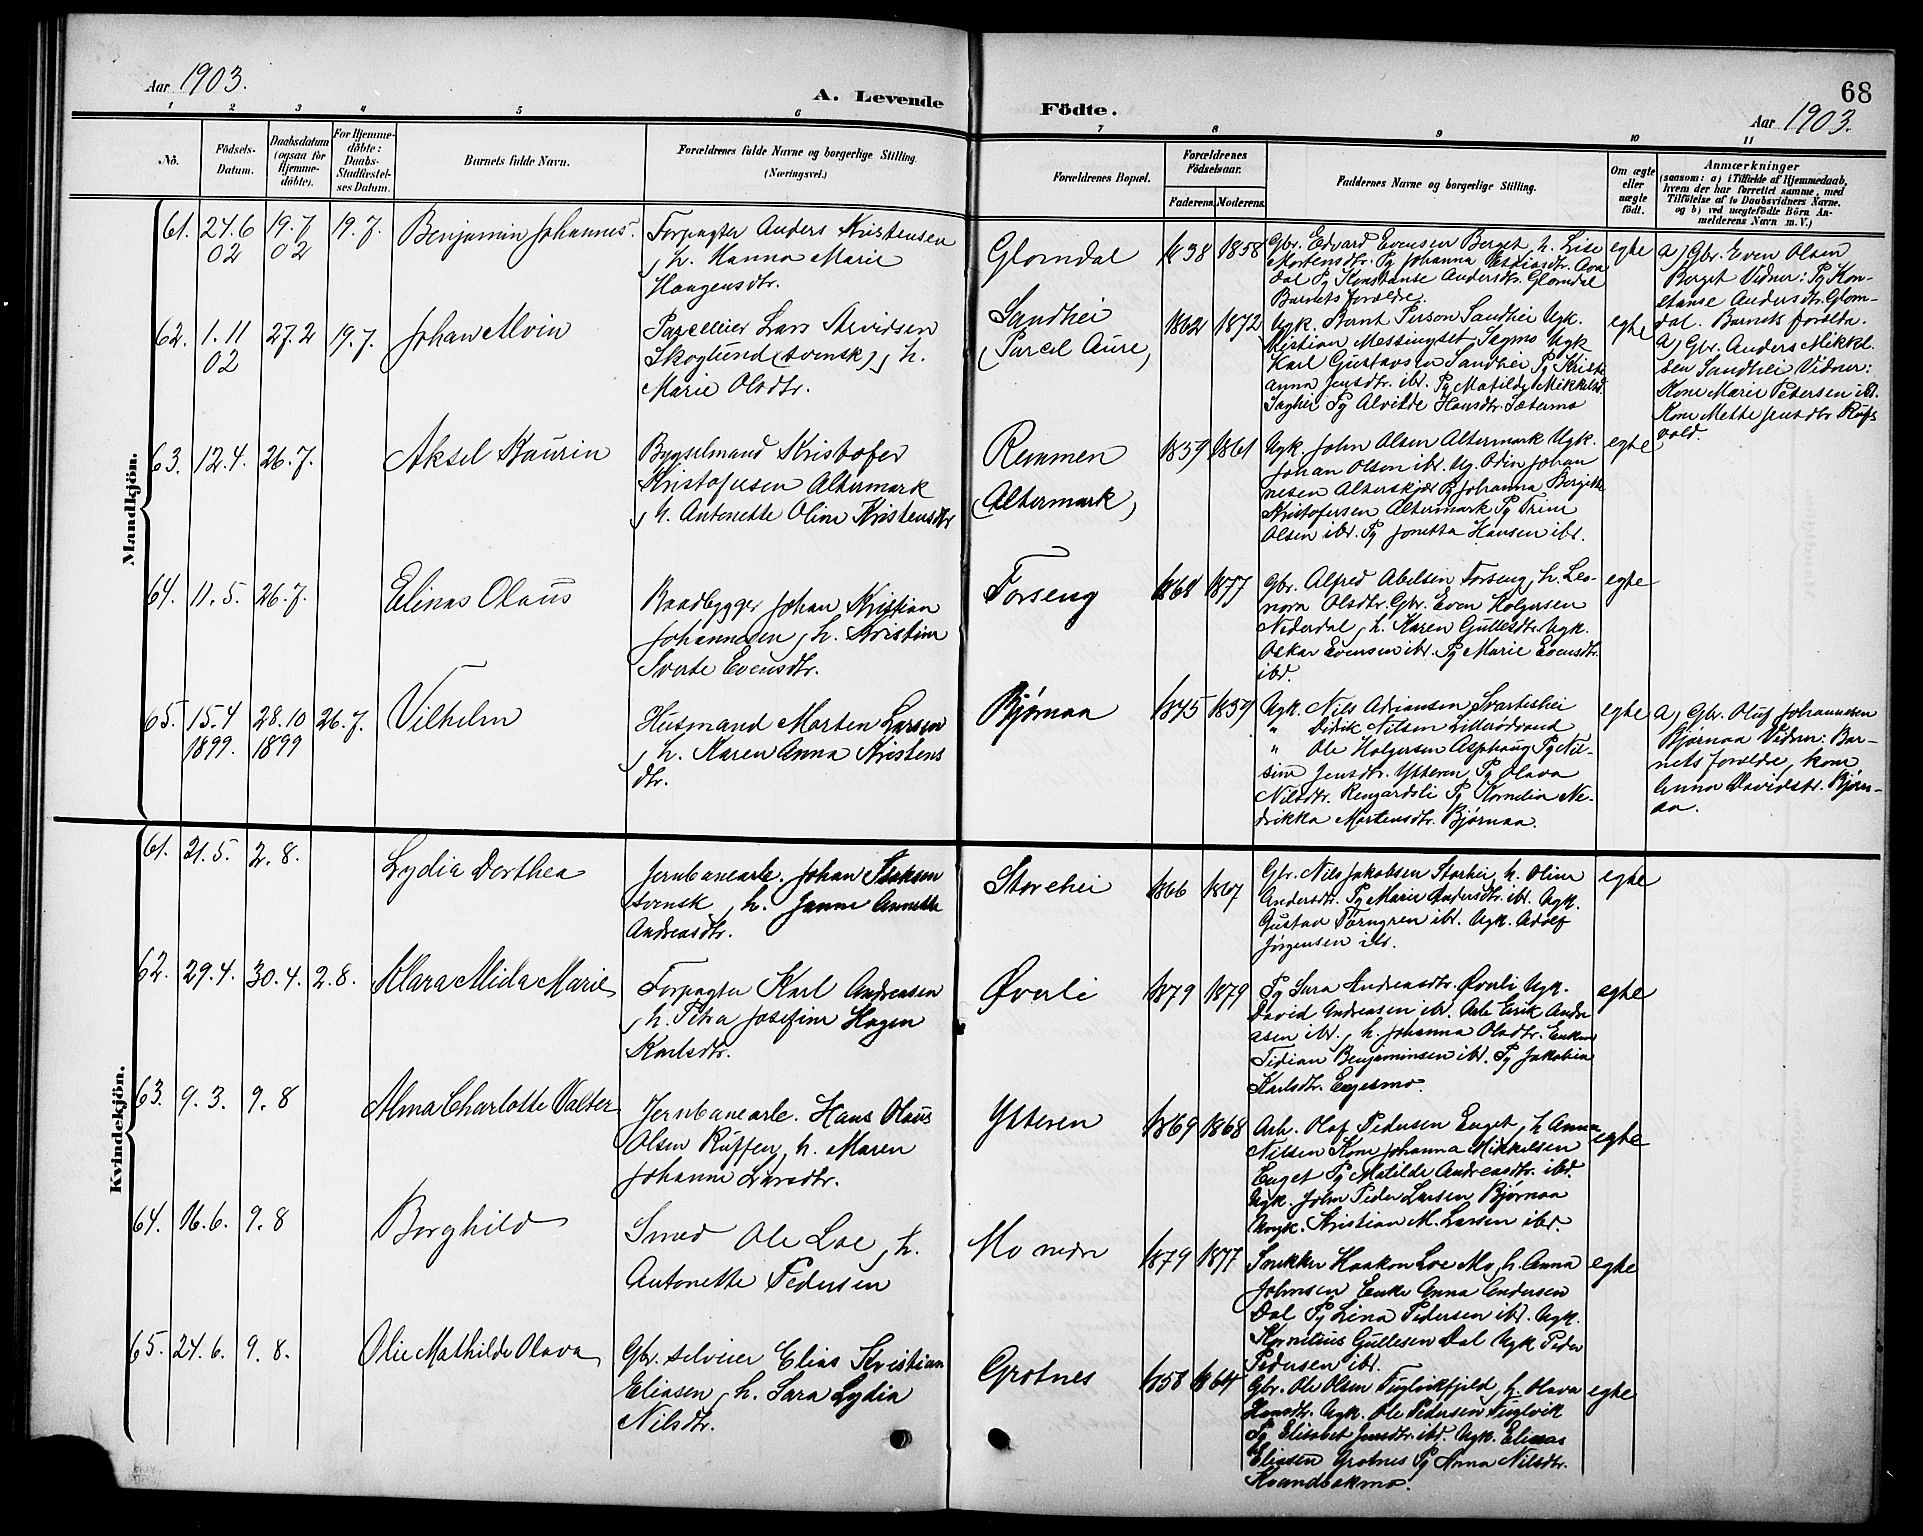 Aar 1903.
A. Levende
Födte.
Aar 1903.
68
1 2 3 4 5 6 7 8 9 10 11
No.
Födsels-
Datum.
Daabsdatum
(ogsaa for
Hjemme-
döbte).
For Hjemme-
döbte:
Daabs-
Stadfæstel-
ses Datum.
Barnets fulde Navn.
Forældrenes fulde Navne og borgerlige Stilling
(Næringsvei.)
Forældrenes Bopæl.
Forældrenes
Födselsaar.
Faderens. Moderens.
Faddernes Navne og borgerlige Stilling.
Om ægte
eller
uægte
födt.
Anmærkninger
(saasom: a) i Tilfælde af Hjemmedaab,
hvem der har forrettet samme, med
Tilföielse af to Daabsvidners Navne.
og b) ved uægtefödte Börn An-
melderens Navn m. V.)
Mandkjön.
61. 24.6 02
19.7 02
19.7.
Benjamin Johannes.
Forpagter Anders Kristensen
, h. Hanna Marie
Haagensdtr.
Glomdal
1838 1858
Gbr. Edvard Evensen Berget, h. Lise
Mortensdtr. Pg Johanna
dal Pg Konstanse Andersdtr. Glomdal
Barnets forældre.
egte
a, Gbr. Even Olsen
Berget Vidner: Pg Kon-
stanse Andersdtr. Glom-
dal. Barnets foreldre.
62. 1.11 02
27.2
19.7.
Johan Alvin
Parcelleier Lars Arvidsen
Skoglund (svensk), h.
Marie Olsdtr.
Sandhei
(Parcel Aure)
1862 1872
Ugk. Bernt Person Sandhei Ugk.
Kristian Messingset Sagmo Ugk
Karl Gustavsen Sandhei Pg Krist-
anna Jensdtr. ibr. Pg Matilde Mikkelsd.
Saghei Pg Alvilde Hansdtr. Sætermo
egte
a, Gbr. Anders Mikkel-
sen Sandhei Vidner:
Kone Marie Petersen ibd.
Kone Mette Jensdtr. Røs-
vold.
63. 12.4. 26.7.
Aksel Kaurin
Bygselmand Kristofer
Kristofersen Altermark
, h. Antonette Oline Kristensdtr
Remmen
(Altermark)
1859 1861
Ugk. John Olsen Altermark Ugk.
Johan Olsen ibr. Ug. Odin Johan
nesen Alterskjær Pg Johanna Bergitte
Kristofersen Altermark Pg Trine
Olsen ibr. Pg Jonetta Hansen ibr.
egte
64. 11.5. 26.7.
Elinas Olaus
Baadbygger Johan Kristian
Johannesen, h. Kristine
Sverte Evensdtr.
Forseng
1868 1877
Gbr. Alfred Abelsen Forseng, h. Les-
nora Olsdtr. Gbr. Even Holgersen
Nederdal, h. Karen Gullesdtr. Ugk.
Oskar Evensen ibr. Pg Marie Evensdtr.
ibr.
egte
65. 15.4 1899.
28.10 1899
26.7.
Vilhelm
Husmand Morten Larsen
, h. Karen Anna Kristens
dtr.
Bjørnaa
1845 1859
Ugk. Nils Adriansen Svarteshei
" Didrik Nilsen
" Ole Holgersen Asphaug Pg Nil-
sine Jensdtr. Ytteren Pg Olava
Nilsdtr. Rengardsli Pg Kornelia Ne-
drikka Mortensdtr. Bjørnaa.
egte
a, Gbr. Oluf Johannesen
Bjørnaa Vidner: Bar-
nets forældre, kone
Anna Davidstr. Bjørn-
aa.
Kvindekjön.
61. 21.5. 2.8.
Lydia Dorthea
Jernbanearb. Johan
svensk, h. Janna Annette
Andreasdtr.
Storehei
1866 1867
Gbr. Nils Jakobsen Storhei, h. Oline
Andersdtr. Pg Marie Andersdtr. ibr. Ugk.
Gustav Törngren ibr. Ugk. Adolf
Jørgensen ibr.
egte
62. 29.4. 30.4. 2.8.
Klara Alida Marie
Forpagter Karl Andreasen
, h. Petra Josefine Hagen
Karlsdtr.
Øverli
1879 1879
Pg Sara Andreasdtr. Øverli Ugk.
David Andreasen ibr. Arb Erik Andre
asen ibr., h. Johanna Olsdtr. Enkem
Tidian Benjaminsen ibr. Pg Jakobine
Karlsdtr. Engesmo.
egte
63. 9.3. 9.8
Alma Charlotte Valter
Jernbanearb. Hans Olaus
Olsen Ruffen, h. Maren
Johanne Larsdtr.
Ytteren
1869 1868
Arb. Olaf Pedersen Enget, h Anna
Nilsen Kone Johanna Mikkelsen
Enget Pg Matilde Andreasdtr. ibd.
Ugk. John Peder Larsen Bjørnaa
Ungk. Kristian M. Larsen ibr.
egte
64. 16.6. 9.8
Borghild
Smed Ole Loe, h.
Antonette Pedersen
Mo nedre
1879 1877
Snikker Haakon Loe Mo, h. Anna
Johnsen Enke Anna Andersen
Dal Pg Lina Pedersen ibr. Ugk.
Kornelius Gullesen Dal Ugk Peder
Pedersen ibr.
egte
65. 24.6. 9.8.
Olie Mathilde Olava
Gbr. selveier Elias Kristian
Eliasen, h. Sara Lydia
Nilsdtr.
Grotnes
1858 1864
Gbr. Ole Olsen Fuglvikfjeld, h. Olava
Hansdtr. Ugk. Ole Pedersen Fuglvik
Pg Elisabet Jensdtr. ibr. Ugk. Elinas
Eliasen Grotnes Pg Anna Nilsdtr.
Kvandbakmo.
egte